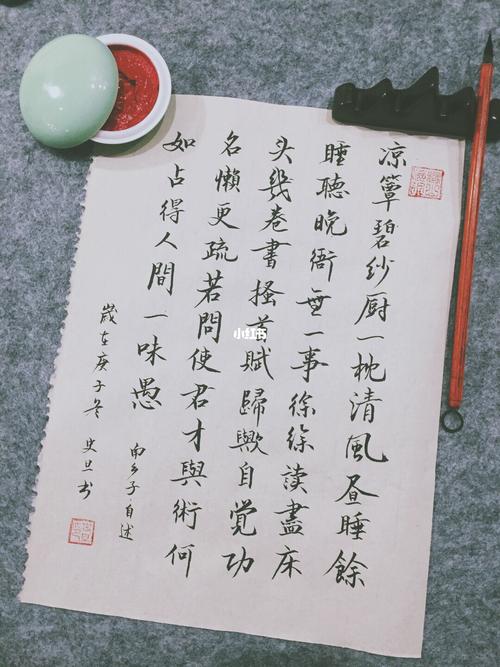 凉簟碧纱厨一枕清風昼睡餘
睡聽晚衙無一事徐徐讀盡床
头幾卷書搔首賦歸歟自覺功
名懶更疏若問使君才與術何
如占得人間一味愚
南乡子·自述
歲在庚子冬 史旦书
小红书